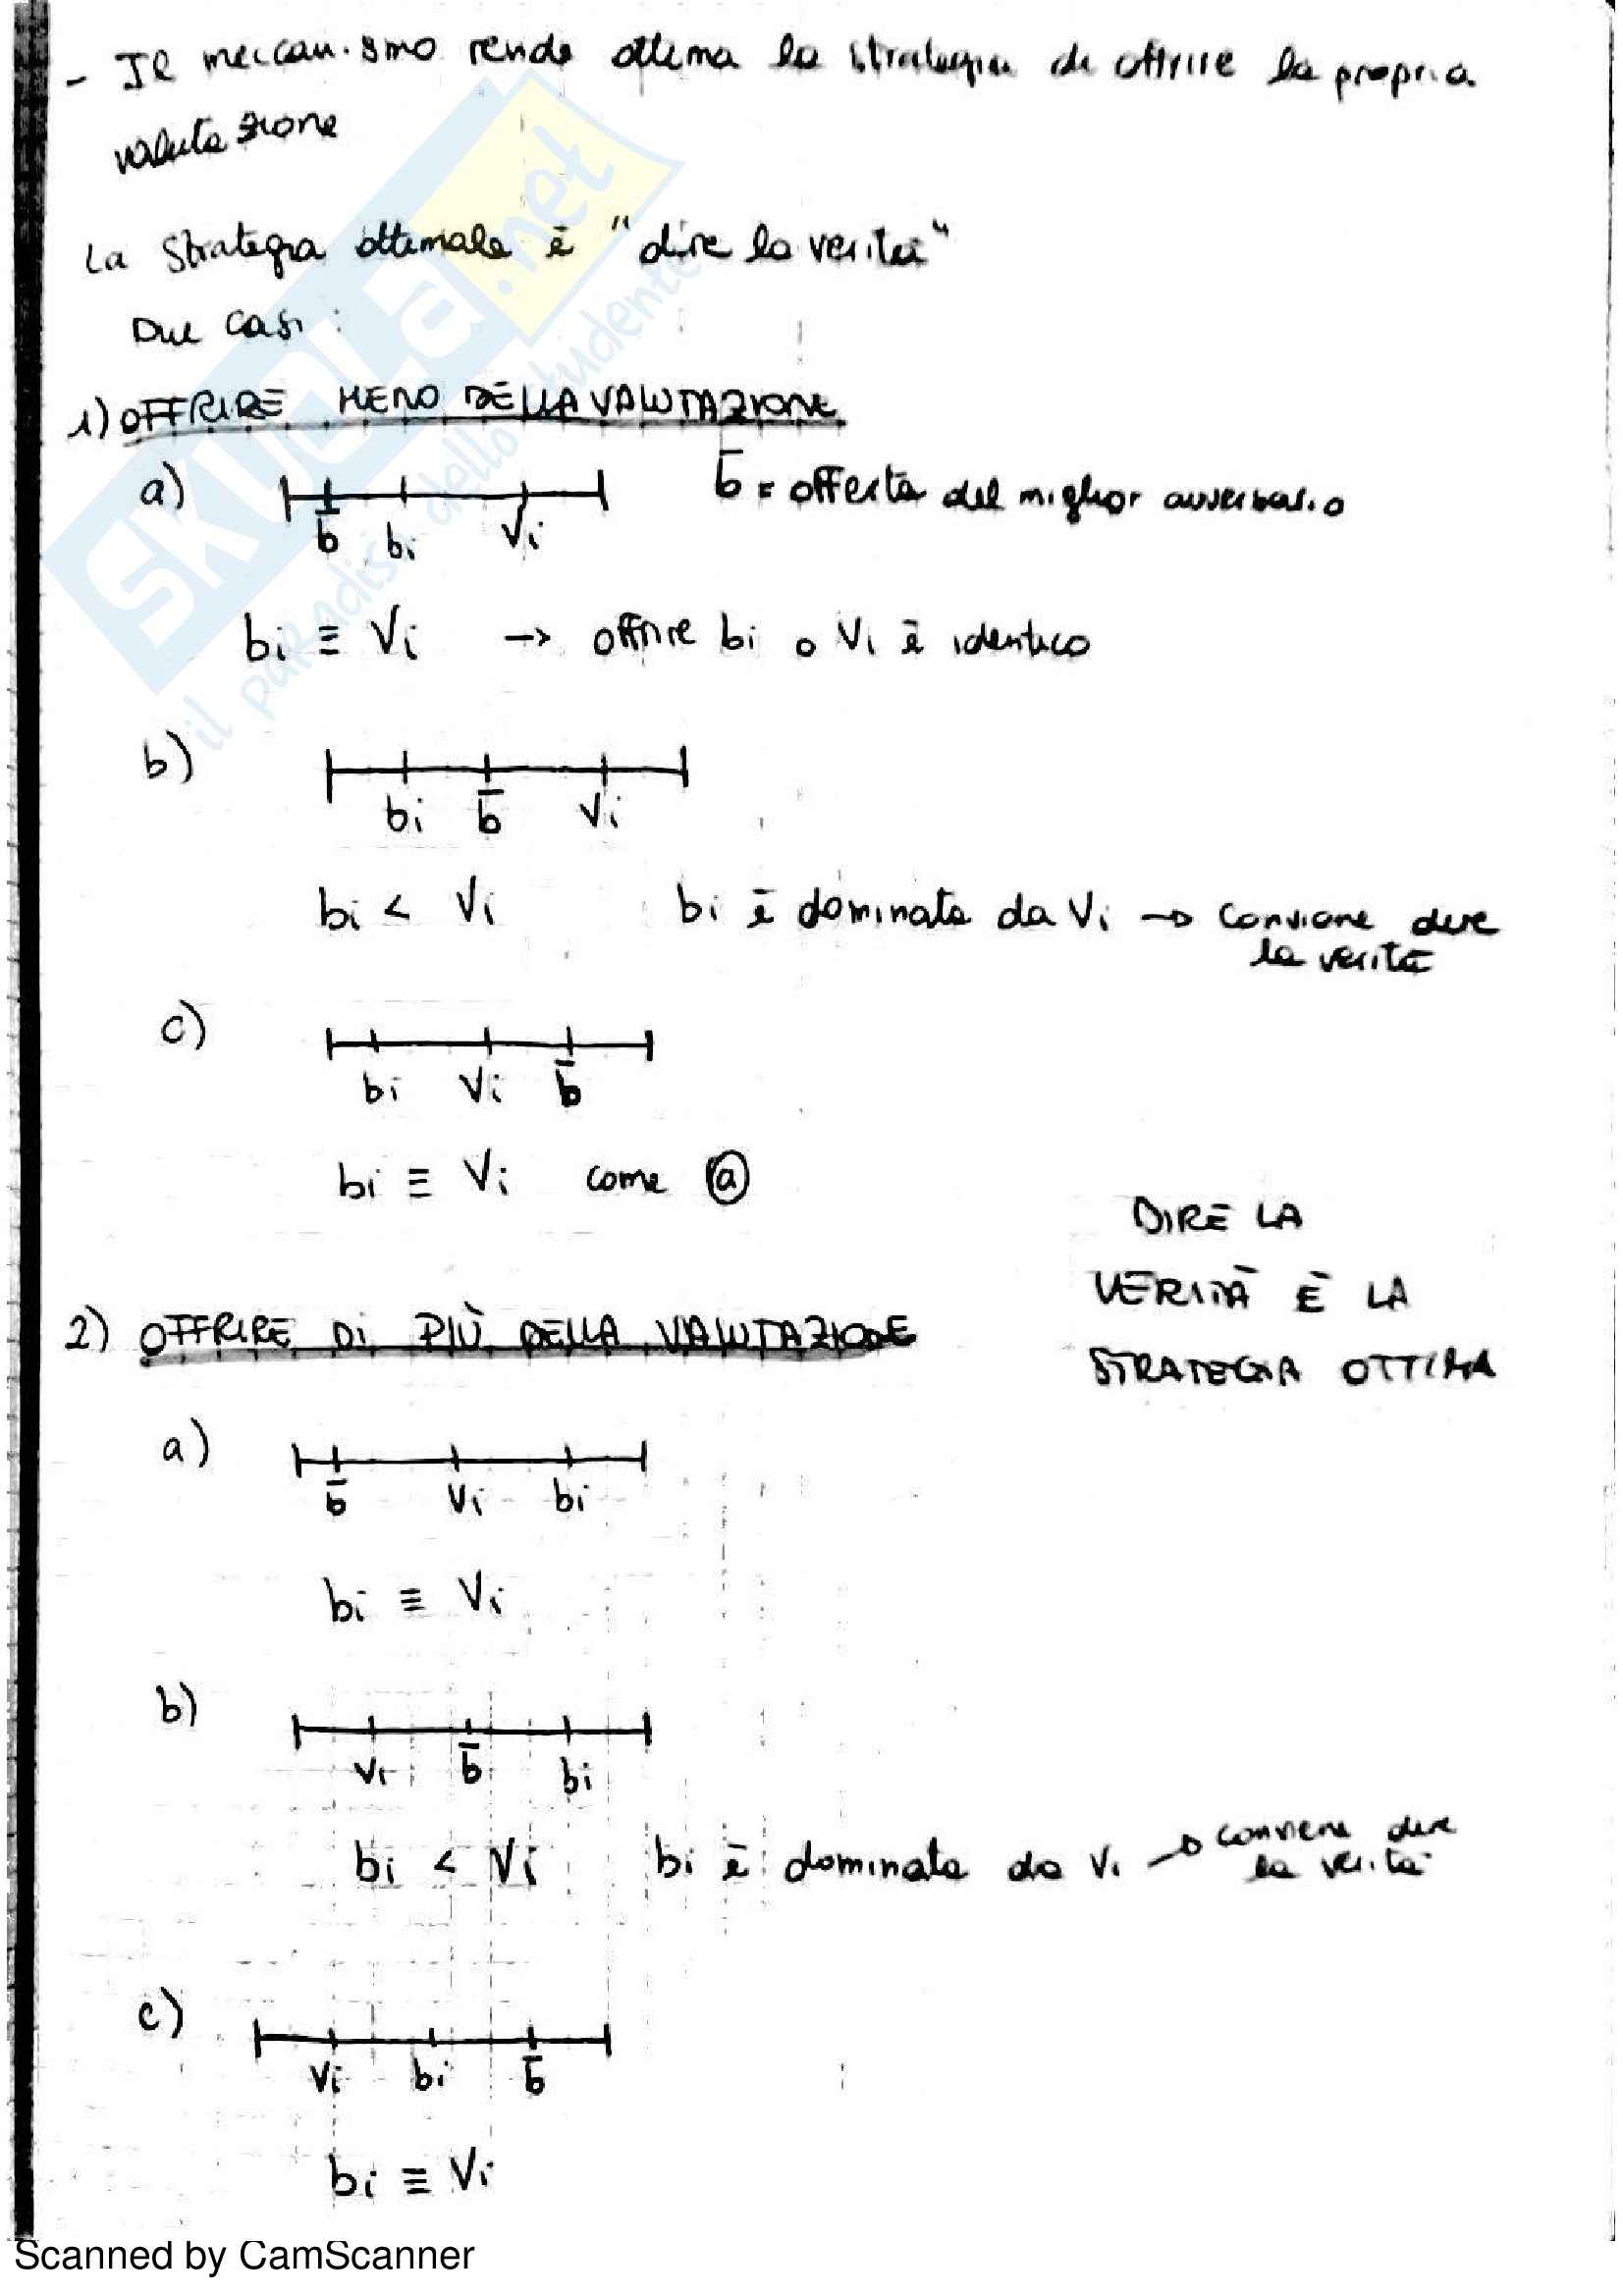 - Il meccanismo rende ottima la strategia di offrire la propria
valutazione
La strategia ottimale è "dire la verità"
Due casi:
1) OFFRIRE MENO DELLA VALUTAZIONE
a)
b̄ bi Vi
b̄ = offerta del miglior avversario
bi ≡ Vi → offrire bi o Vi è identico
b)
bi b̄ Vi
bi < Vi bi è dominata da Vi → conviene dire
la verità
c)
bi Vi b̄
bi ≡ Vi come ⓐ
DIRE LA
VERITÀ È LA
STRATEGIA OTTIMA
2) OFFRIRE DI PIÙ DELLA VALUTAZIONE
a)
b̄ Vi bi
bi ≡ Vi
b)
Vi b̄ bi
bi < Vi bi è dominata da Vi → conviene dire
la verità
c)
Vi bi b̄
bi ≡ Vi
SKUOLA.net
il paradiso dello studente
Scanned by CamScanner